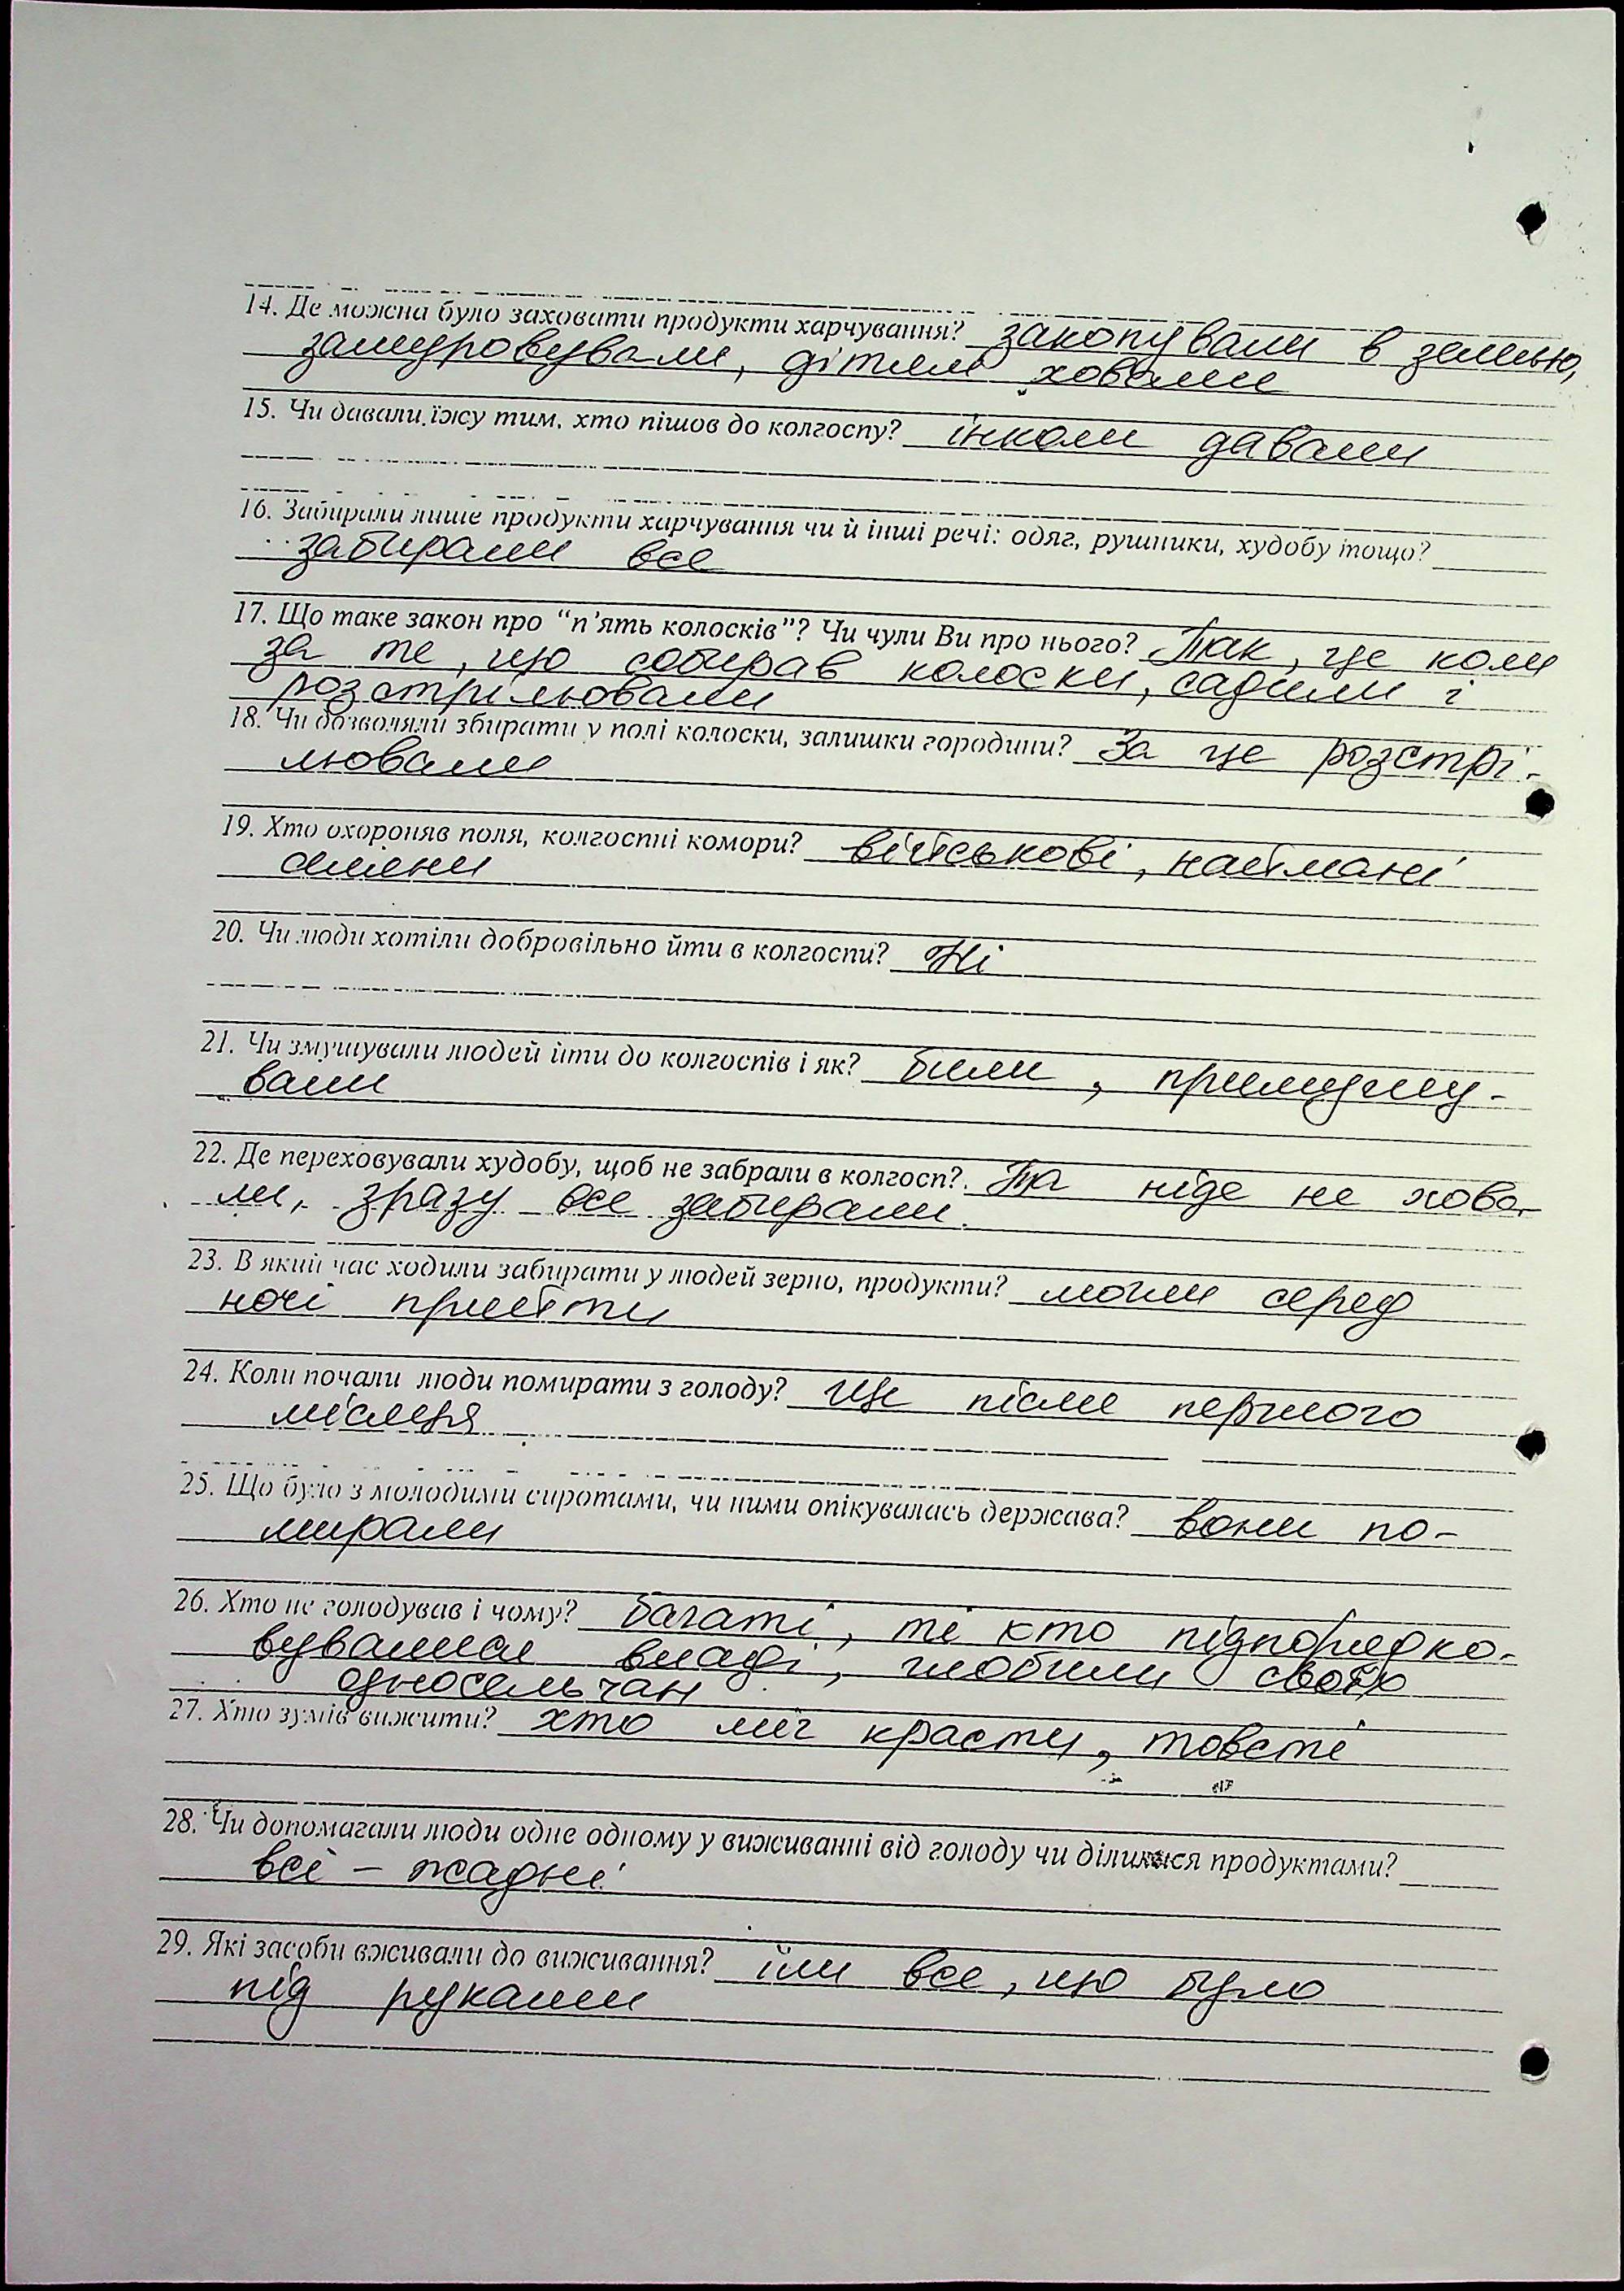 14. Де можна було заховати продукти харчування? закопували в землю,
замуровували, дітям ховали
15. Чи давали їжу тим, хто пішов до колгоспу? інколи давали
16. Забирали лише продукти харчування чи й інші речі: одяг, рушники, худобу тощо?
забирали все
17. Що таке закон про “п’ять колосків”? Чи чули Ви про нього? Так, це коли
за те, що собирав колоски, садили і
розстрілювали
18. Чи дозволяли збирати у полі колоски, залишки городини? За це розстрі-
лювали
19. Хто охороняв поля, колгоспні комори? військові, наймані
20. Чи люди хотіли добровільно йти в колгоспи? Ні
21. Чи змушували людей йти до колгоспів і як? били, примушу-
вали
22. Де переховували худобу, щоб не забрали в колгосп? Та ніде не хова-
ли, зразу все забирали.
23. В який час ходили забирати у людей зерно, продукти? могли серед
ночі прийти
24. Коли почали люди помирати з голоду? Ще після першого
місяця
25. Що було з молодими сиротами, чи ними опікувалась держава? вони по-
мирали
26. Хто не голодував і чому? багаті, ті кто підпорядко-
вувалися владі, гнобили своїх
односельчан
27. Хто зумів вижити? хто міг красти, товсті
28. Чи допомагали люди одне одному у виживанні від голоду чи ділилися продуктами?
всі – жадні
29. Які засоби вживали до виживання? їли все, що було
під руками